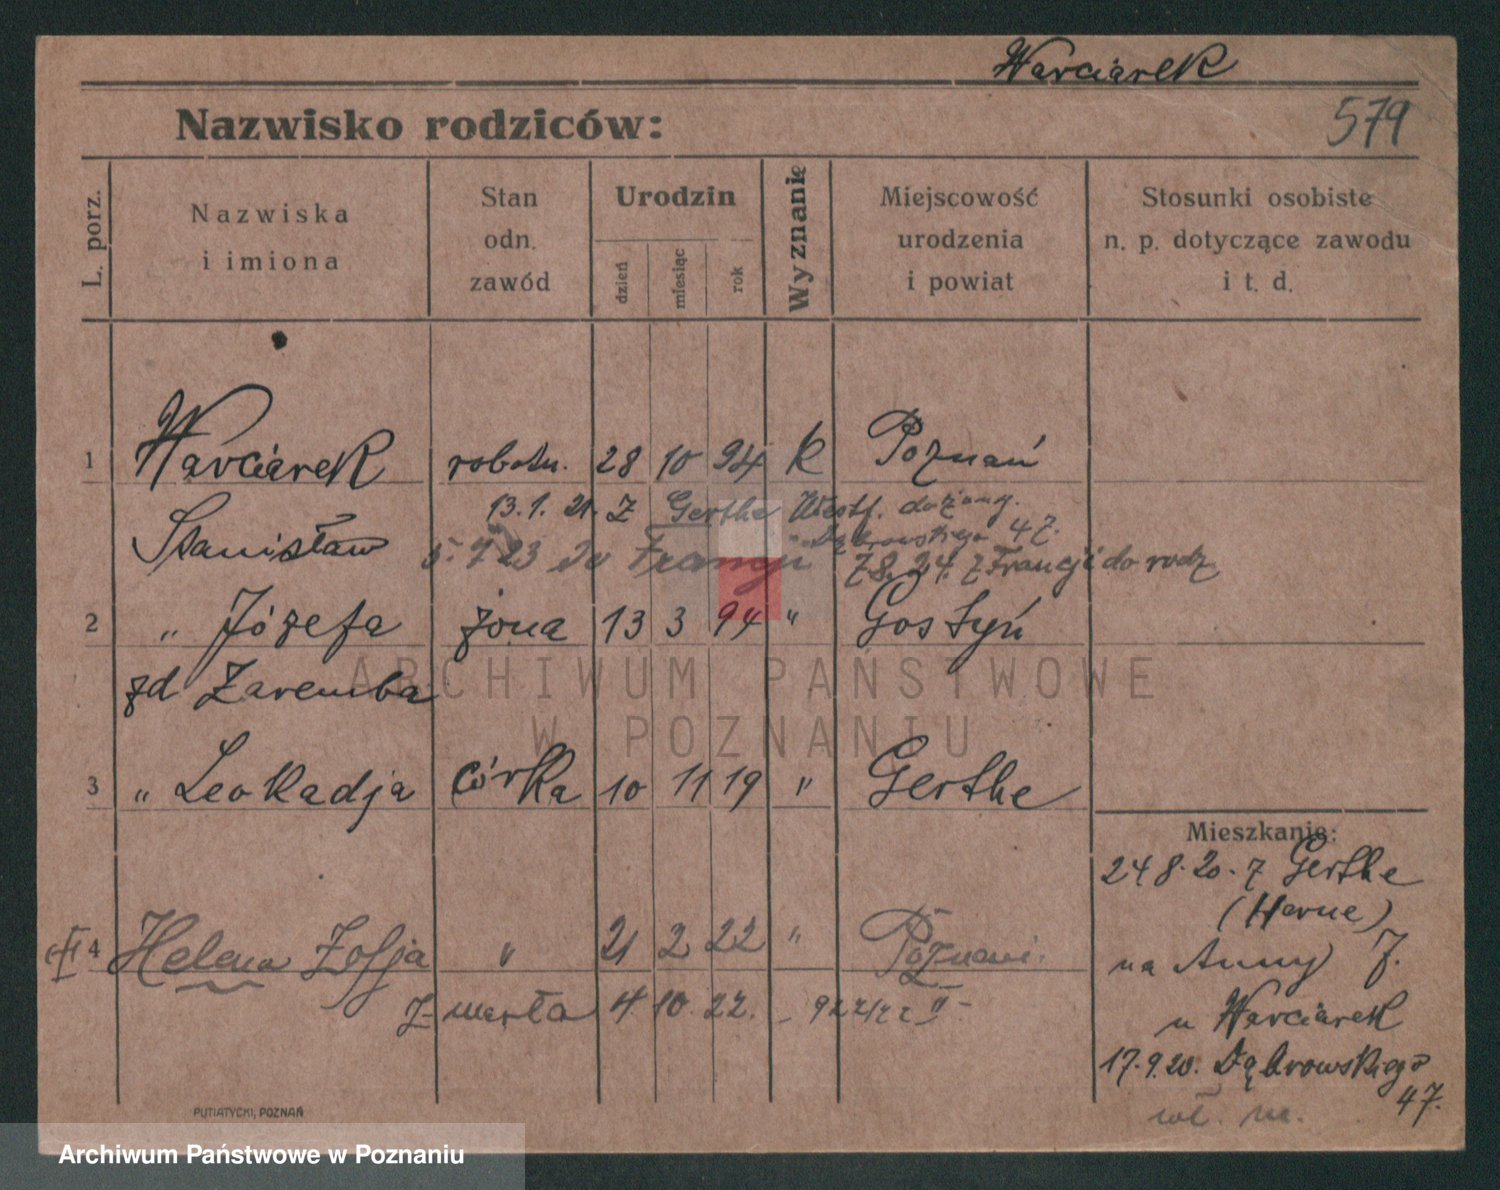 Warciarek
Nazwisko rodziców:
579
L. porz.
Nazwiska
i imiona
Stan
odn.
zawód
Urodzin
dzień
miesiąc
rok
Wyznanie
Miejscowość
urodzenia
i powiat
Stosunki osobiste
n. p. dotyczące zawodu
i t. d.
1 Warciarek robotn. 28 10 94 k Poznań
13.1.21. Z Gerthe Westf.
Stanisław
Dąbrowskiego 47.
5. 7 23 do Francji 7.8.24. z Francji do rodz.
2 " Józefa żona 13 3 94 " Gostyń
zd Zaremba
ARCHIWUM PAŃSTWOWE
W POZNANIU
3 " Leokadja córka 10 11 19 " Gerthe
Mieszkanie:
24 8. 20. z Gerthe
(Herne)
4 Helena Zofja " 21 2 22 " Poznań
na Anny 7.
Zmarła 4. 10. 22. - 922/22 II -
u Warciarek
17.9.20. Dąbrowskiego
47.
PUTIATYCKI, POZNAŃ
Archiwum Państwowe w Poznaniu